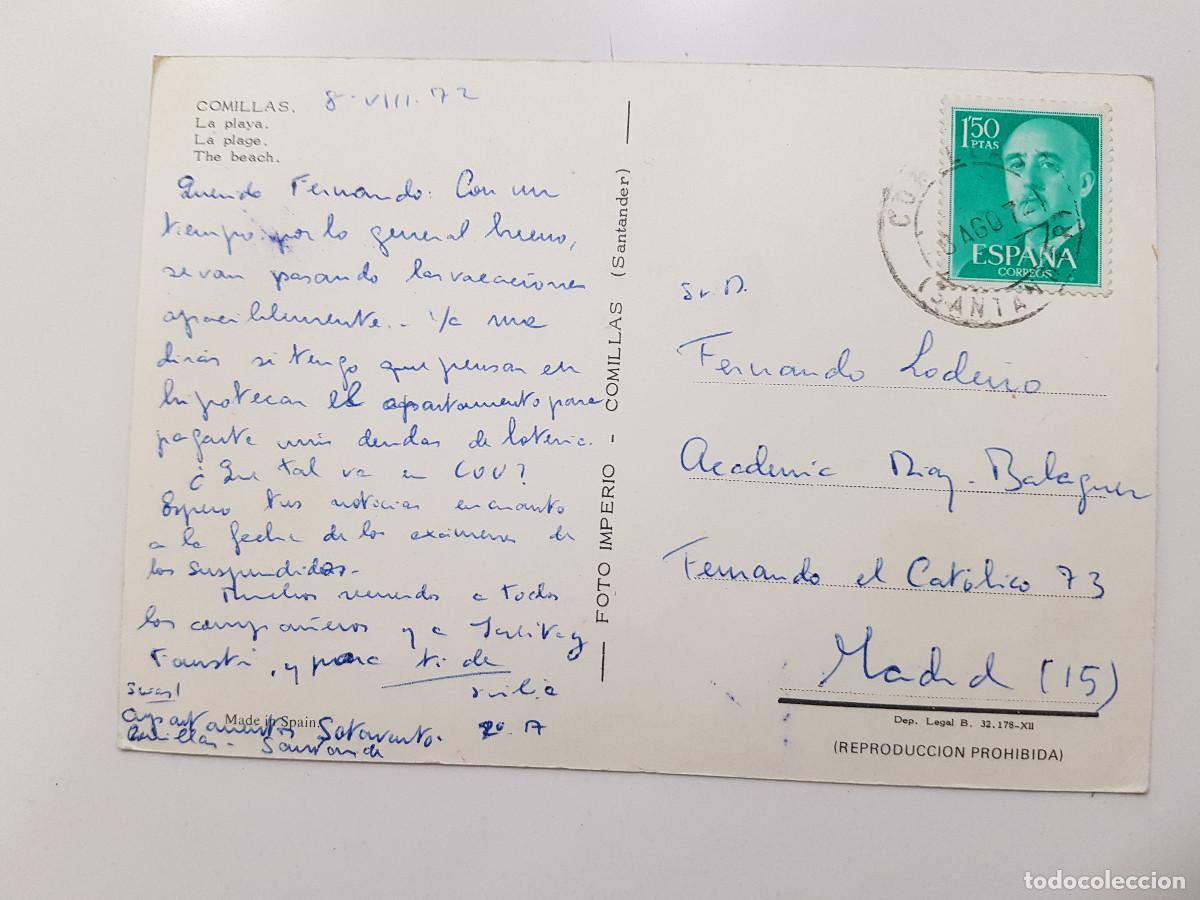 COMILLAS. 8-VIII.72
La playa.
La plage.
The beach.
Querido Fernando: Con un
tiempo por lo general bueno,
se van pasando las vacaciones
apaciblemente.- Ya me
diras si tengo que pensar en
hipotecar el apartamento para
pagarte mis deudas de loteria.
¿Que tal va en COU?
Espero tus noticias en cuanto
a la fecha de los exámenes de
los suspendidos-
Muchos recuerdos a todos
los compañeros y a Julita y
Fausti, y para ti de
Apartamentos Sotavento. 2º. A
Comillas - Santander
Made in Spain.
FOTO IMPERIO - COMILLAS (Santander)
1'50
PTAS
ESPAÑA
CORREOS
COMILLAS
8 AGO 72
(SANTANDER)
Sr. D.
Fernando Lodeiro
Academia Diaz-Balaguer
Fernando el Católico 73
Madrid (15)
Dep. Legal B. 32.178-XII
(REPRODUCCION PROHIBIDA)
todocoleccion